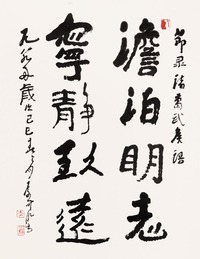 節录諸葛武侯語
澹泊明志
寧静致遠
歲次己巳